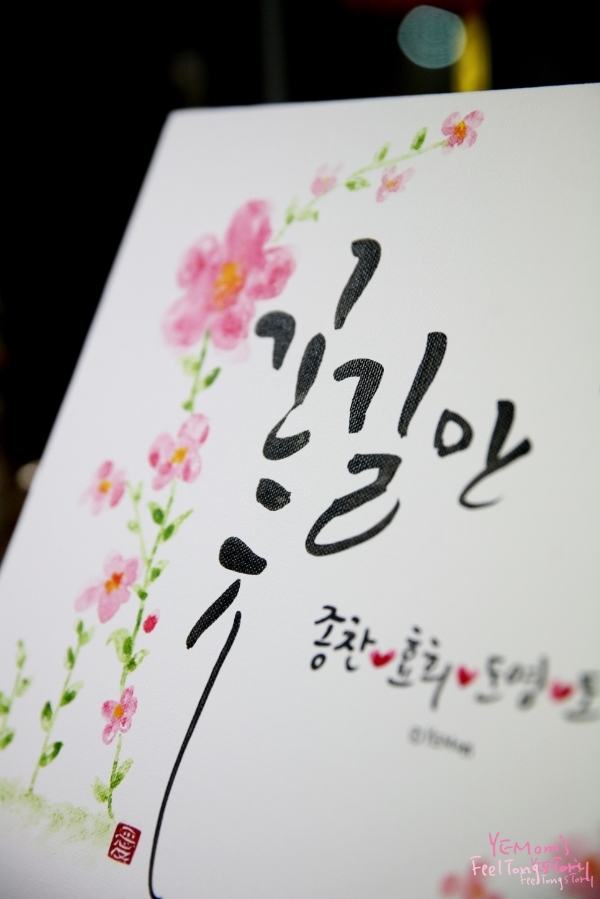 꽃길만
종찬♥효희♥도영♥
YEMom's
FeelTongsTory
FeelTongsTory